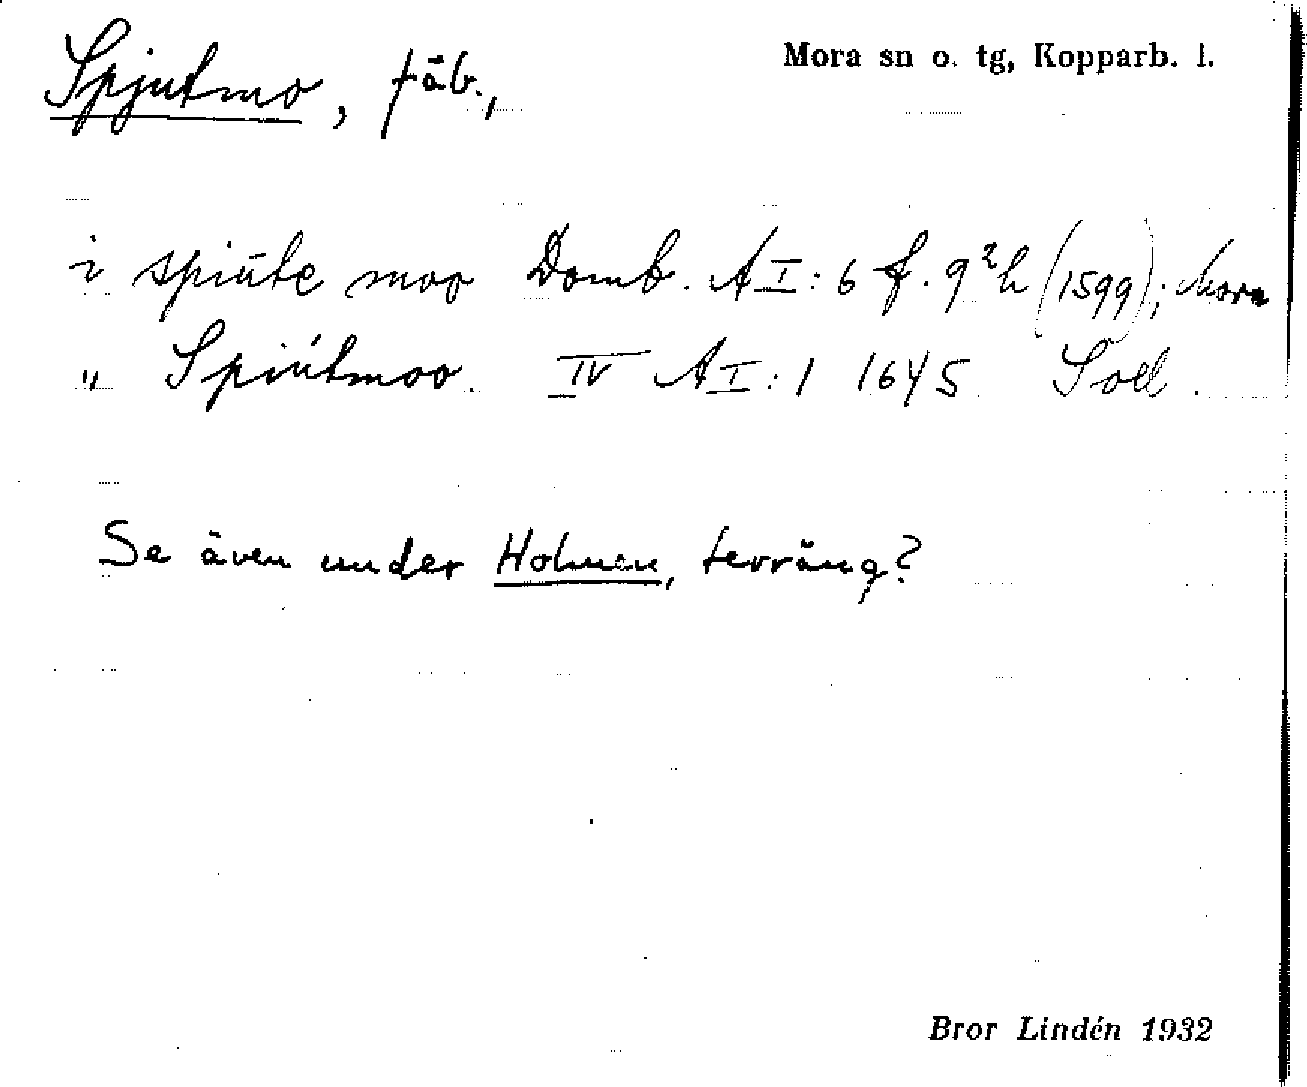 Spjutmo, fäb.,
Mora sn o. tg, Kopparb. l.
i spiúte moo Domb. AI:6 f. 9²h (1599); Mora
" Spiútmoo. IV AI:1 1645 Soll.
Se även under Holmen, terräng?
Bror Lindén 1932